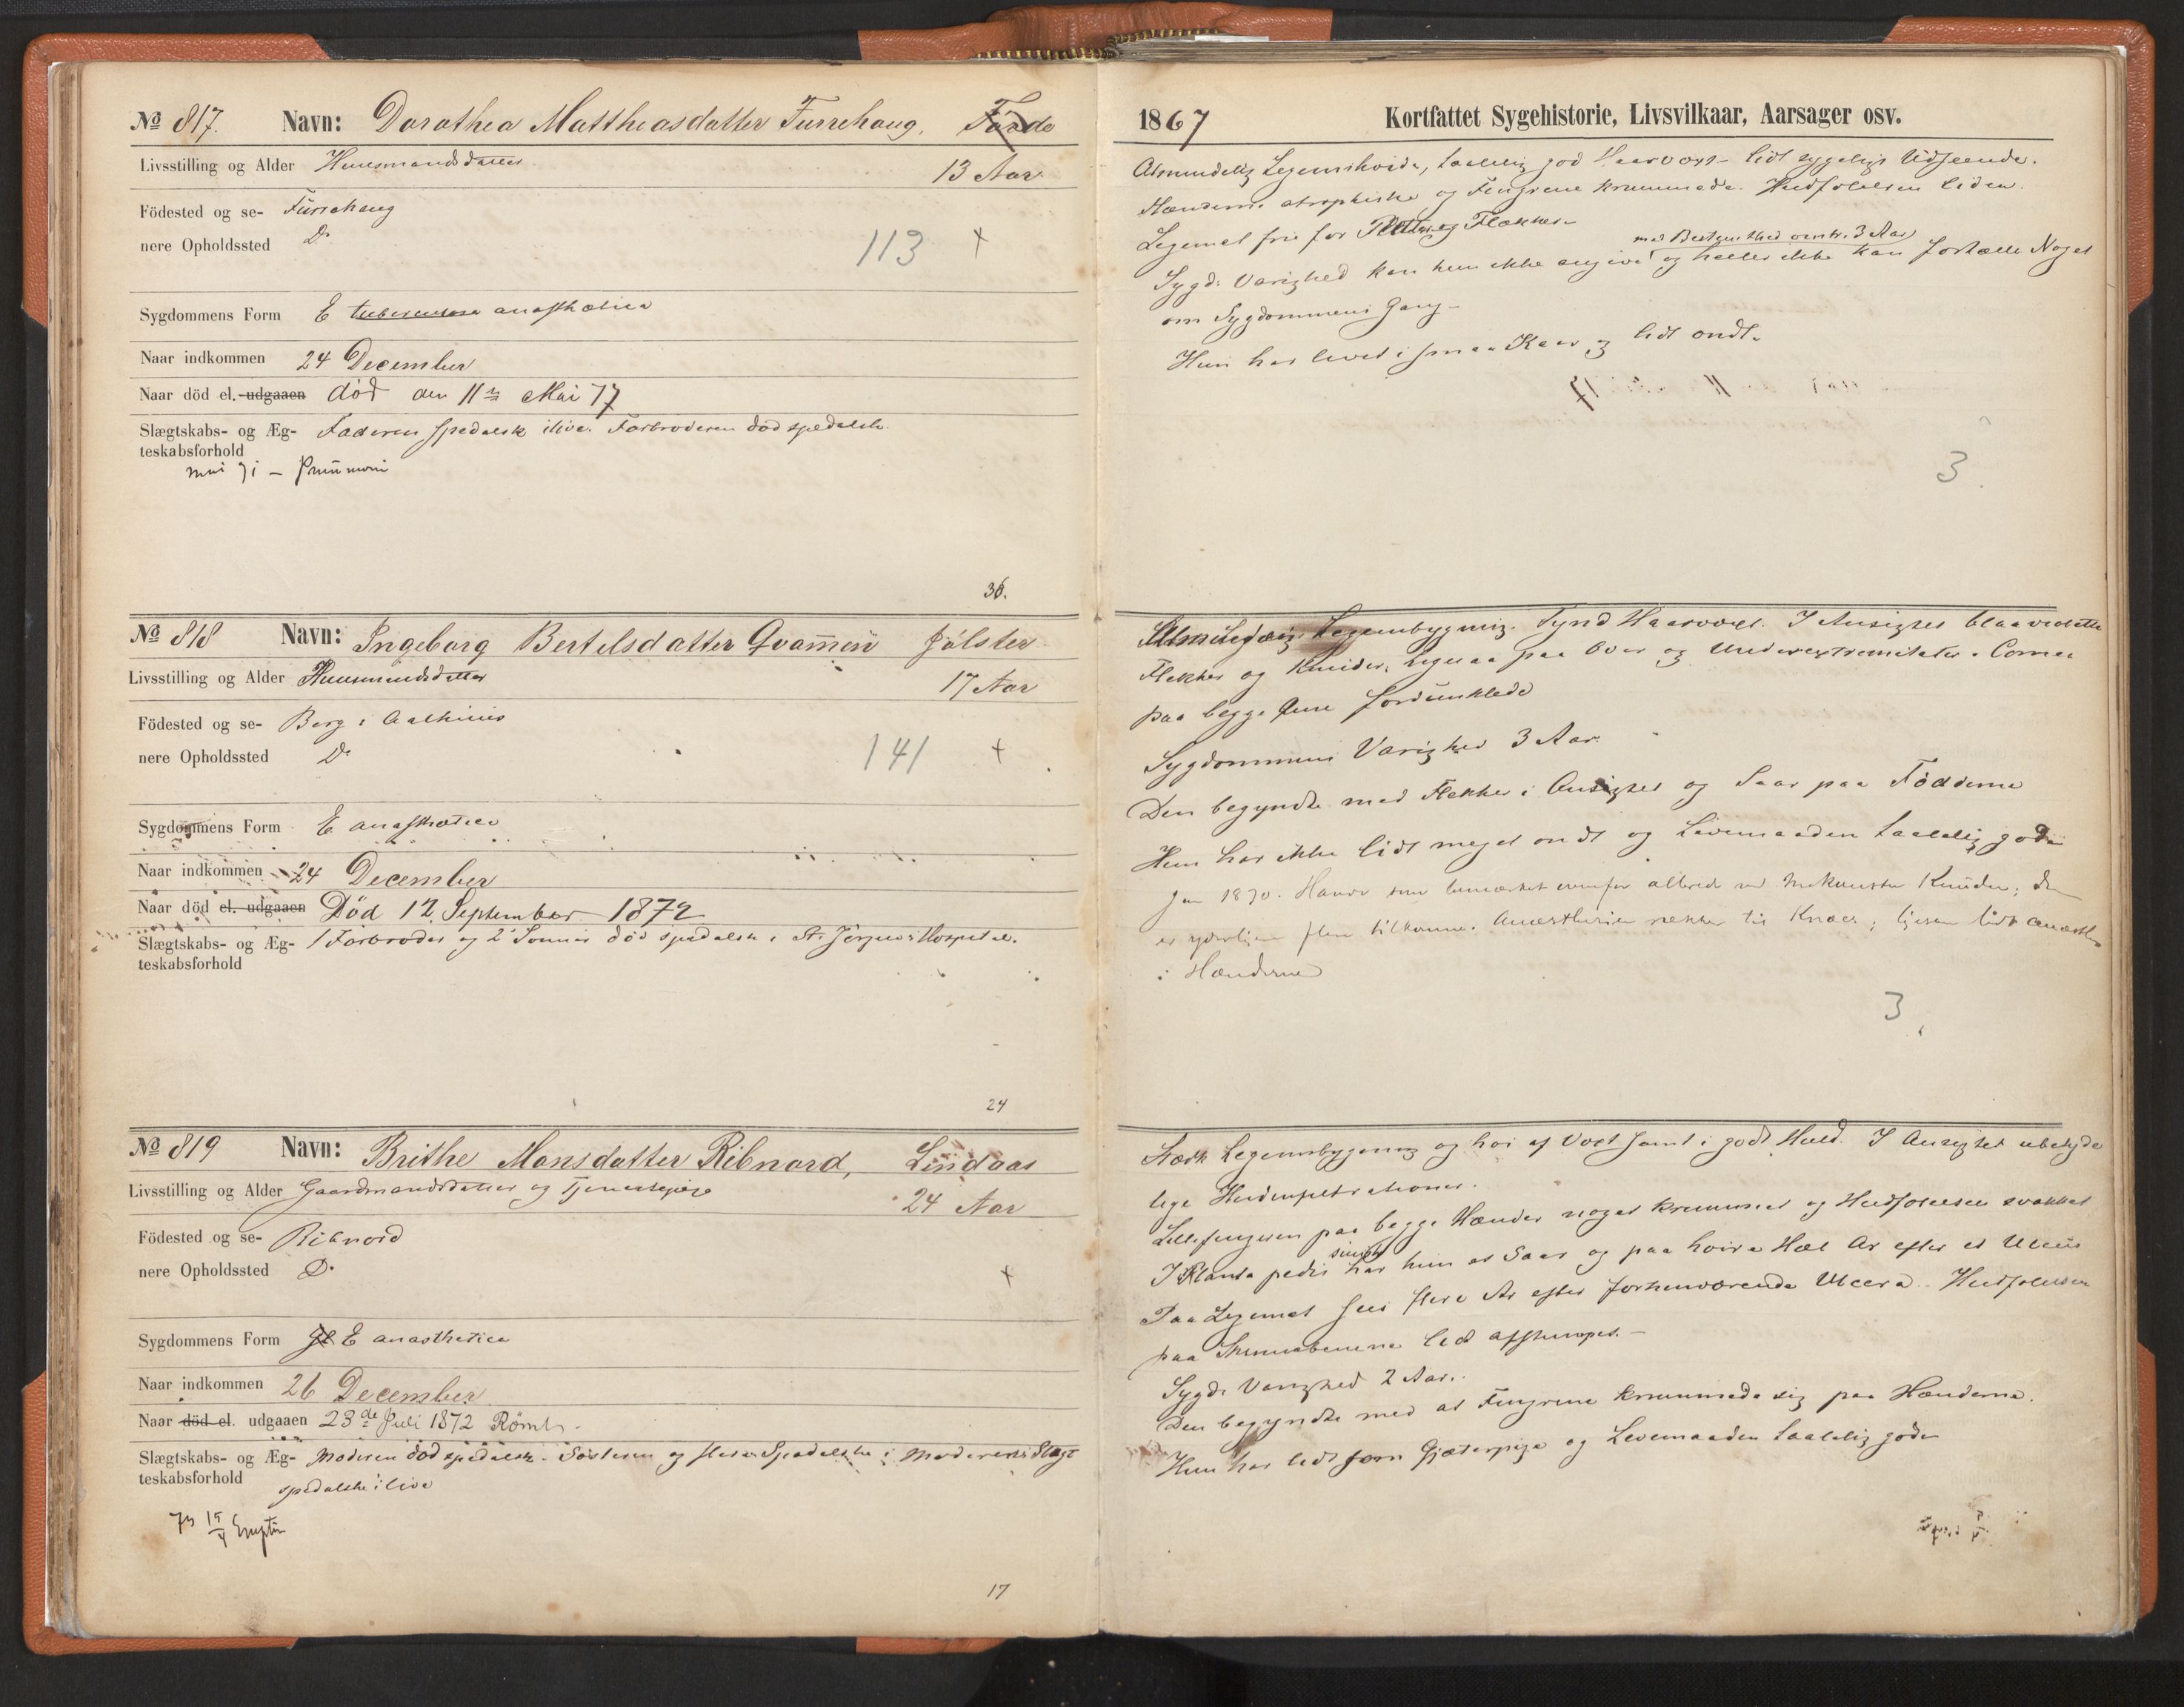 No 817. Navn: Dorothea Matthiasdatter Furrehaug, Förde
Livsstilling og Alder Huusmandsdatter 13 Aar
Födested og se- Furrehaug
nere Opholdssted Do 113 +
Sygdommens Form E tuberculosa anæsthetica
Naar indkommen 24 December
Naar död el. udgaaen död den 11te Mai 77
Slægtskabs- og Æg- Faderen spedalsk ilive. Farbroderen död spedalsk.
teskabsforhold
36.
No 818 Navn: Ingeborg Bertelsdatter Qvammen Jölster
Livsstilling og Alder Huusmandsdatter 17 Aar
Födested og se- Berg i Aalhuus
nere Opholdssted Do 141 +
Sygdommens Form E anæsthetica
Naar indkommen 24 December
Naar död el. udgaaen Död 12 September 1872
Slægtskabs- og Æg- 1 Farbroder og 2 Sönner död spedalsk i St. Jörgens Hospital.
teskabsforhold
24
No 819 Navn: Brithe Monsdatter Ribnord, Lindaas
Livsstilling og Alder Gaardmandsdatter og Tjenestepige 24 Aar
Födested og se- Ribnord
nere Opholdssted Do +
Sygdommens Form E anæsthetica
Naar indkommen 26 December
Naar död el. udgaaen 23de Juli 1872 Römt.
Slægtskabs- og Æg- Moderen död spedalsk. Sösteren og flere Spedalske i Moderens Slægt
teskabsforhold spedalske ilive
17
1867 Kortfattet Sygehistorie, Livsvilkaar, Aarsager osv.
Almindelig Legemshöide, taalelig god Haarvoxt - lidt sygeligt Udseende.
Hænderne atrophiske og Fingrene krummede. Hudfölelsen liden.
Legemet frie for Pletter og Flekker -
med Bestemthed omtr. 3 Aar
Sygd: Varighed kan hun ikke angive og heller ikke kan fortælle Noget
om Sygdommens Gang -
Hun har levet i smaa Kaar og lidt ondt.
3
Legemsbygning. Tynd Haarvoxt. I Ansigtet blaaviolette
Flekker og Knuder, ligesaa paa Over og Underextremiteter. Cornea
paa begge Öine fordunklede
Sygdommens Varighed 3 Aar.
Den begyndte med Flekker i Ansigtet og Saar paa Födderne
Hun har ikke lidt meget ondt og Levemaaden taalelig god
Jan 1870. Havde som bemærket ovenfor allerede ved Indkomsten Knuder; der
er yderligere flere tilkomne. Anæsthesien rækker til Knæer; ligesaa lidt anæsth
i Hænderne
3
Stærk Legemsbygning og höi af Vext samt i godt Huld. I Ansigtet ubetyde
lige Hudinfiltrationer.
Lillefingeren paa begge Hænder noget krummet og Hudfölelsen svækket
I Planta pedis sinistr har hun et Saar og paa höire Hæl Ar efter et Ulcus
Paa Legemet sees flere Ar efter forhenværende Ulcera. Hudfölelsen
paa Skinnebenene lidt afstumpet. -
Sygd: Varighed 2 Aar.
Den begyndte med at Fingrene krummede sig paa Hænderne.
Hun har lidt som Gjæterpige og Levemaaden taalelig god